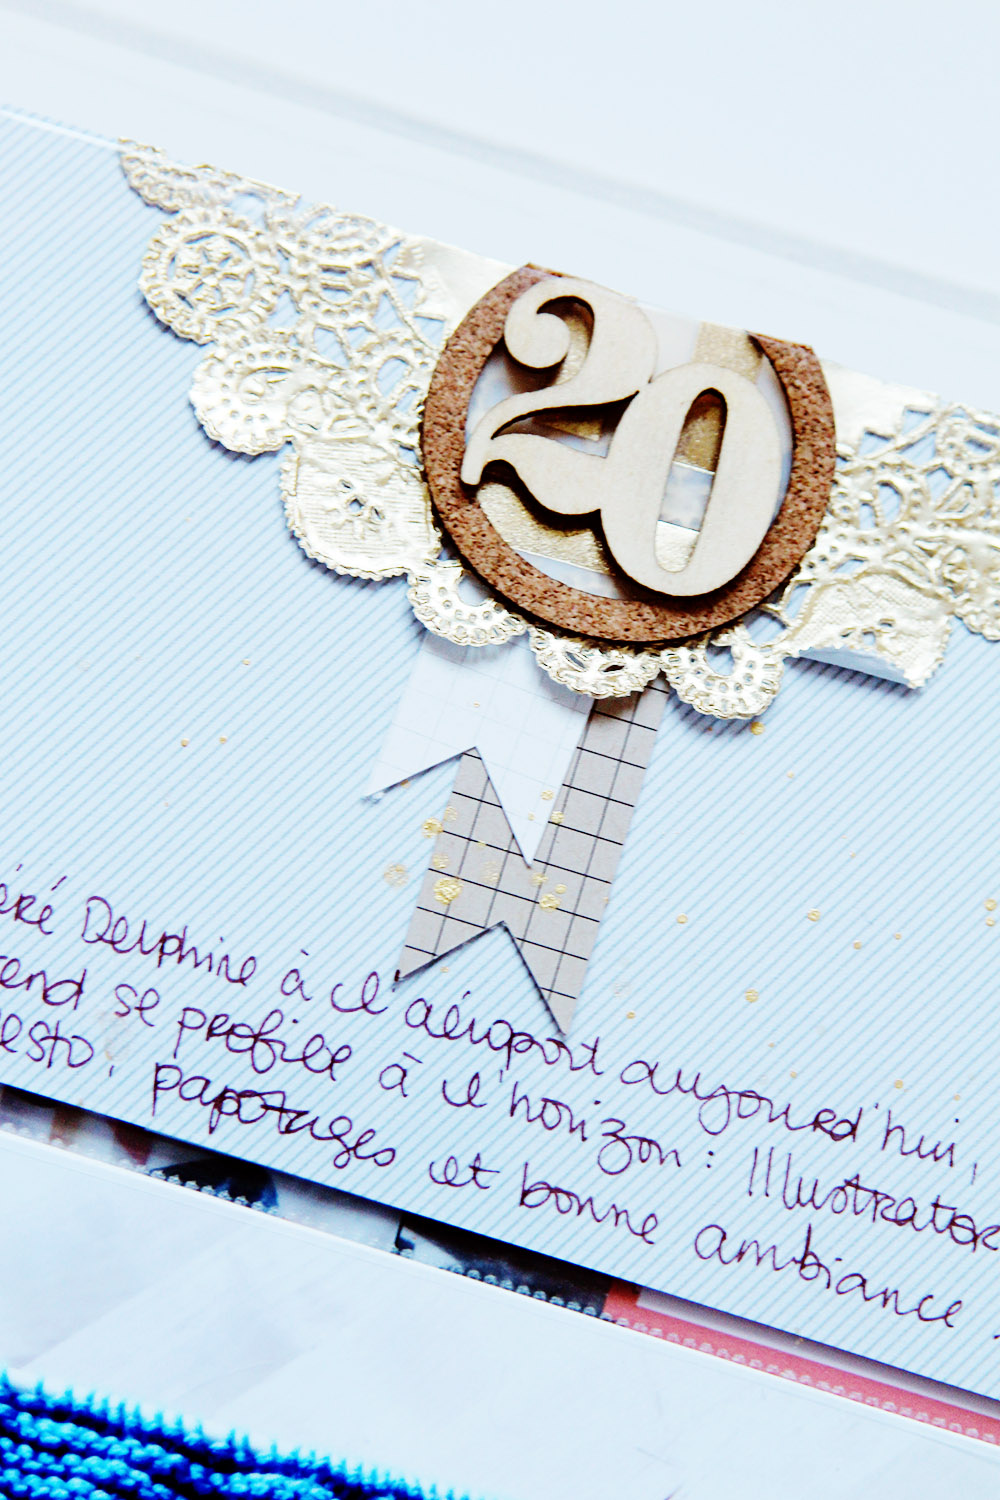 20
éré Delphine à l'aéroport aujourd'hui,
end se profile à l'horizon : Illustrator
esto, papotages et bonne ambiance